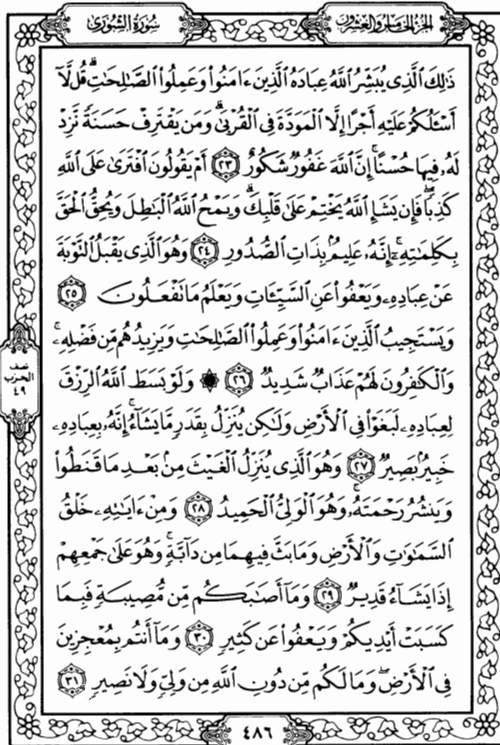 الجزء الخامس والعشرون
سورة الشورى
ذَٰلِكَ ٱلَّذِى يُبَشِّرُ ٱللَّهُ عِبَادَهُ ٱلَّذِينَ ءَامَنُوا۟ وَعَمِلُوا۟ ٱلصَّـٰلِحَـٰتِ ۗ قُل لَّآ
أَسْـَٔلُكُمْ عَلَيْهِ أَجْرًا إِلَّا ٱلْمَوَدَّةَ فِى ٱلْقُرْبَىٰ ۗ وَمَن يَقْتَرِفْ حَسَنَةً نَّزِدْ
لَهُۥ فِيهَا حُسْنًا ۚ إِنَّ ٱللَّهَ غَفُورٌ شَكُورٌ ٢٣ أَمْ يَقُولُونَ ٱفْتَرَىٰ عَلَى ٱللَّهِ
كَذِبًا ۖ فَإِن يَشَإِ ٱللَّهُ يَخْتِمْ عَلَىٰ قَلْبِكَ ۗ وَيَمْحُ ٱللَّهُ ٱلْبَـٰطِلَ وَيُحِقُّ ٱلْحَقَّ
بِكَلِمَـٰتِهِۦٓ ۚ إِنَّهُۥ عَلِيمٌۢ بِذَاتِ ٱلصُّدُورِ ٢٤ وَهُوَ ٱلَّذِى يَقْبَلُ ٱلتَّوْبَةَ
عَنْ عِبَادِهِۦ وَيَعْفُوا۟ عَنِ ٱلسَّيِّـَٔاتِ وَيَعْلَمُ مَا تَفْعَلُونَ ٢٥
وَيَسْتَجِيبُ ٱلَّذِينَ ءَامَنُوا۟ وَعَمِلُوا۟ ٱلصَّـٰلِحَـٰتِ وَيَزِيدُهُم مِّن فَضْلِهِۦ ۚ
وَٱلْكَـٰفِرُونَ لَهُمْ عَذَابٌ شَدِيدٌ ٢٦ ۞ وَلَوْ بَسَطَ ٱللَّهُ ٱلرِّزْقَ
لِعِبَادِهِۦ لَبَغَوْا۟ فِى ٱلْأَرْضِ وَلَـٰكِن يُنَزِّلُ بِقَدَرٍ مَّا يَشَآءُ ۚ إِنَّهُۥ بِعِبَادِهِۦ
خَبِيرٌۢ بَصِيرٌ ٢٧ وَهُوَ ٱلَّذِى يُنَزِّلُ ٱلْغَيْثَ مِنۢ بَعْدِ مَا قَنَطُوا۟
وَيَنشُرُ رَحْمَتَهُۥ ۚ وَهُوَ ٱلْوَلِىُّ ٱلْحَمِيدُ ٢٨ وَمِنْ ءَايَـٰتِهِۦ خَلْقُ
ٱلسَّمَـٰوَٰتِ وَٱلْأَرْضِ وَمَا بَثَّ فِيهِمَا مِن دَآبَّةٍ ۚ وَهُوَ عَلَىٰ جَمْعِهِمْ
إِذَا يَشَآءُ قَدِيرٌ ٢٩ وَمَآ أَصَـٰبَكُم مِّن مُّصِيبَةٍ فَبِمَا
كَسَبَتْ أَيْدِيكُمْ وَيَعْفُوا۟ عَن كَثِيرٍ ٣٠ وَمَآ أَنتُم بِمُعْجِزِينَ
فِى ٱلْأَرْضِ ۖ وَمَا لَكُم مِّن دُونِ ٱللَّهِ مِن وَلِىٍّ وَلَا نَصِيرٍ ٣١
نصف
الحزب
٤٩
٤٨٦